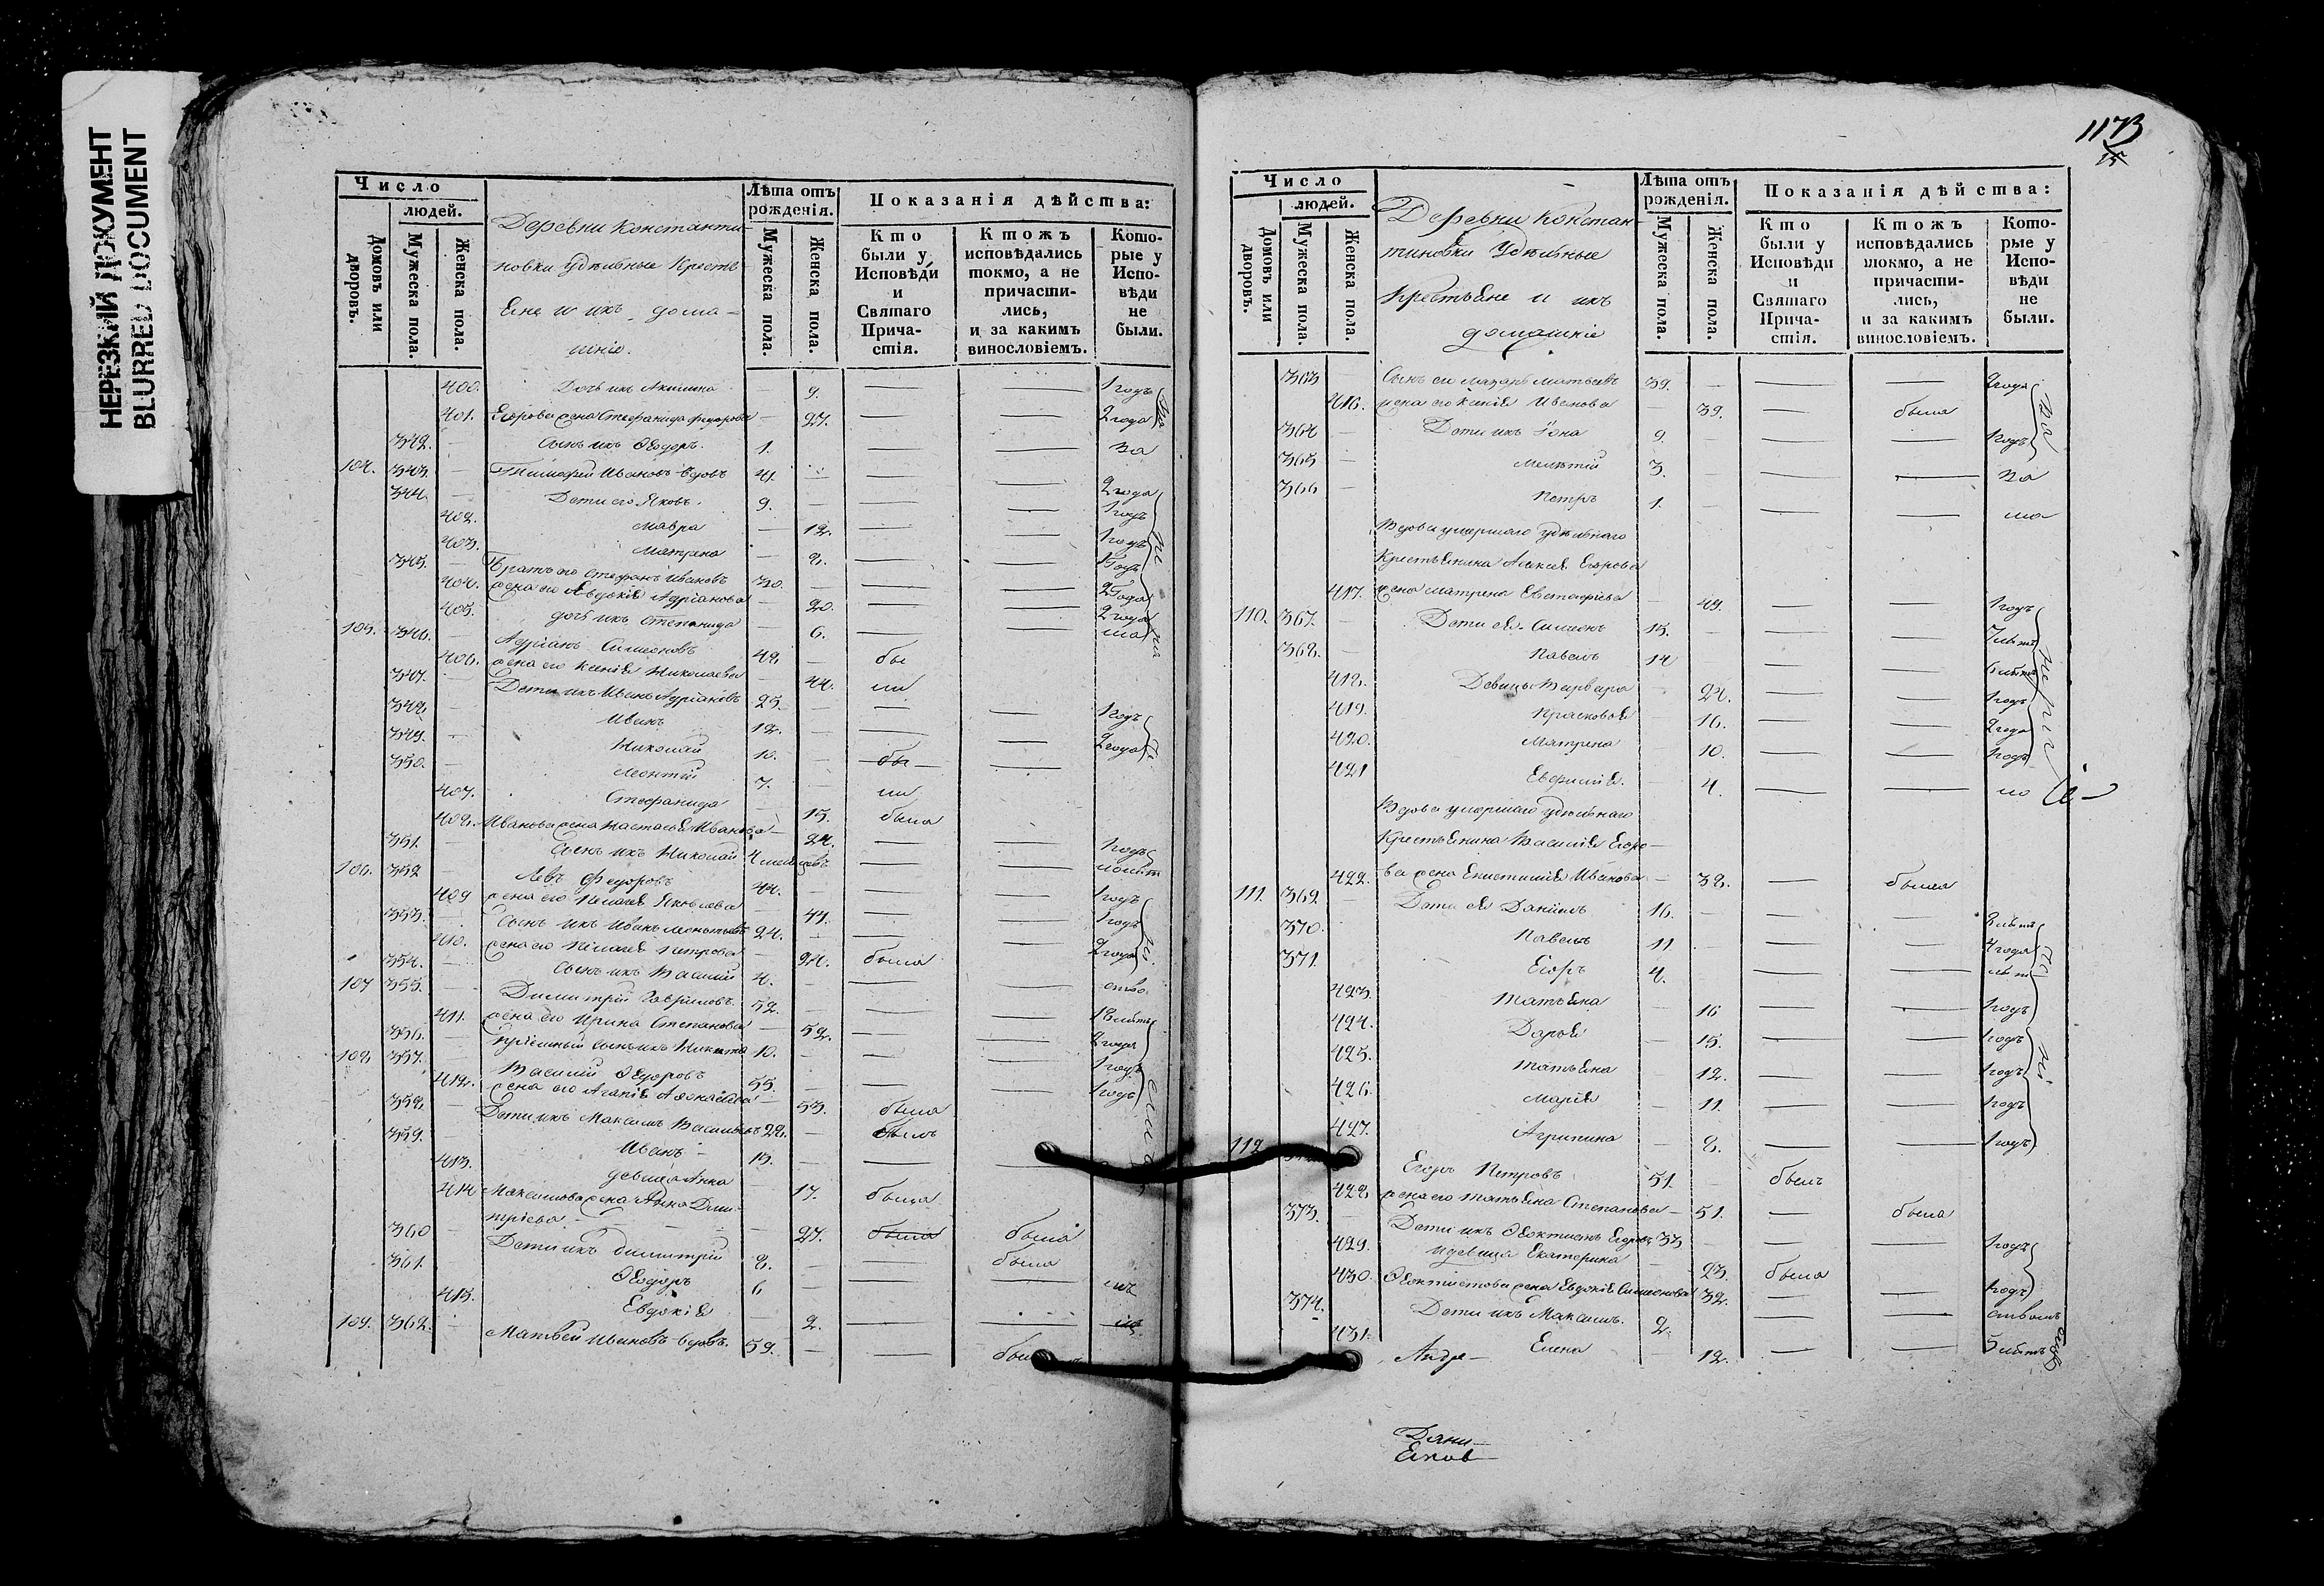 НЕРЕЗКИЙ ДОКУМЕНТ
BLURRED DOCUMENT
Число
людей.
Домовъ или дворовъ.
Мужеска пола.
Женска пола.
Деревни Константи-
новки Удѣльные Крестья-
не и ихъ дома-
шніе.
Лѣта отъ рожденія.
Мужеска пола.
Женска пола.
Показанія дѣйства:
Кто были у Исповѣди и Святаго Причастія.
Ктожъ исповѣдались токмо, а не причастились, и за какимъ винословіемъ.
Которые у Исповѣди не были.
400. Дочь ихъ Акилина — 9. — — 1 годъ
401. Егорова жена Стефанида Федорова — 27. — — 2 года
342. Сынъ ихъ Ѳеодоръ. 1. — — за
104. 343. — Тимофей Ивановъ вдовъ 41. — — — 2 года
344. — Дети его Яковъ. 9. — — — 1 годъ
402. Мавра — 12. — — 1 годъ
403. Матрена — 8. — —
345. — Братъ его Стефанъ Ивановъ 30. — — — 2 года
404. жена его Авдокія Адріанова — 20. — — 2 года
405. дочь ихъ Степанида — 6. — — ма
105. 346. — Адріанъ Симеоновъ 48 — бы
406. жена его Ксенія Николаева — 44. ли
347. — Дети ихъ Иванъ Адріановъ 25. — — — 1 годъ
348. — Иванъ 12. — — — 2 года
349. — Николай 10. — бы —
350. — Леонтій 7. — ли
407. Стефанида — 13. была
408. Иванова жена Настасья Иванова — 24. — — 1 годъ
351. — Сынъ ихъ Николай 4 месяцовъ — —
106. 352 — Левъ Федоровъ 44. — — — 1 годъ
409 жена его Пелагея Яковлева — 44. — — 1 годъ
353. — Сынъ ихъ Иванъ Леонтьевъ 24. — — — 2 года
410. жена его Пелагея Петрова — 24. была
354. — Сынъ ихъ Василій 4. — — —
107 355. — Димитрій Гавриловъ. 52. — — — 18 лѣтъ
411. жена его Ирина Степанова — 52. — — 2 года
356. — Пріемный сынъ ихъ Никита 10. — — — 1 годъ
108 357. — Василій Ѳедоровъ 55. — — — 1 годъ
412. жена его Агапія Аѳонасіева — 53. была
358. — Дети ихъ Максимъ Васильевъ 28. — былъ
359. — Иванъ — 13. — — —
413. девица Анна — 17. была
414 Максимова жена Анна Дми-
тріева — 27. была была
360 — Дети ихъ Димитрій 8. — — была
361. — Ѳеодоръ 6 — — —
415. Евдокія — 2. — —
109. 362. — Матвей Ивановъ вдовъ. 59. — —
1173
15
Число
людей.
Домовъ или дворовъ.
Мужеска пола.
Женска пола.
Деревни Констан-
тиновки Удѣльные
Крестьяне и ихъ
домашніе
Лѣта отъ рожденія.
Мужеска пола.
Женска пола.
Показанія дѣйства:
Кто были у Исповѣди и Святаго Причастія.
Ктожъ исповѣдались токмо, а не причастились, и за какимъ винословіемъ.
Которые у Исповѣди не были.
363 — Сынъ его Лазарь Матвеевъ 39. — — — 2 года
416. жена его Ксенія Иванова — 39. — была
364 — Дети ихъ Іона 9. — — — 1 годъ
365 — Мелетій 3. — — — за
366 — Петръ 1. — — — ма
Вдова умершаго удѣльнаго
Крестьянина Алексея Егорова
417. жена Матрена Евстафіева — 49. — — 1 годъ
110. 367. — Дети ея Симеонъ 15. — — — 7 лѣтъ
368. — Павелъ 14 — — — 6 лѣтъ
418. Девицы Варвара — 24. — — 1 годъ
419. Прасковья — 16. — — 2 года
420. Матрена — 10. — — 1 годъ
421 Евфимія. — 4. — —
Вдова умершаго удѣльнаго
Крестьянина Василія Егоро-
422. ва жена Епистимія Иванова — 38. — была
111. 369 — Дети ея Даніилъ 16. — — —
370. Павелъ 11 — — — 4 года
371. Егоръ 4. — — —
423. Татьяна — 16 — — 1 годъ
424. Дарья — 15. — — 1 годъ
425. Татьяна — 12. — — 1 годъ
426. Марія — 11. — — 1 годъ
427. Агрипина — 8. — — 1 годъ
112 Егоръ Петровъ 51. — былъ
428 жена его Татьяна Степанова — 51. — была
373. — Дети ихъ Ѳеоктистъ Егоровъ 33 — — — 1 годъ
429. и девица Екатерина — 23. была
430. Ѳеоктистова жена Евдокія Симеонова 32. — — 1 годъ
374. — Дети ихъ Максимъ. 2. — — —
431. Елена — 12. — — 5 лѣтъ
Андре-
Дани-